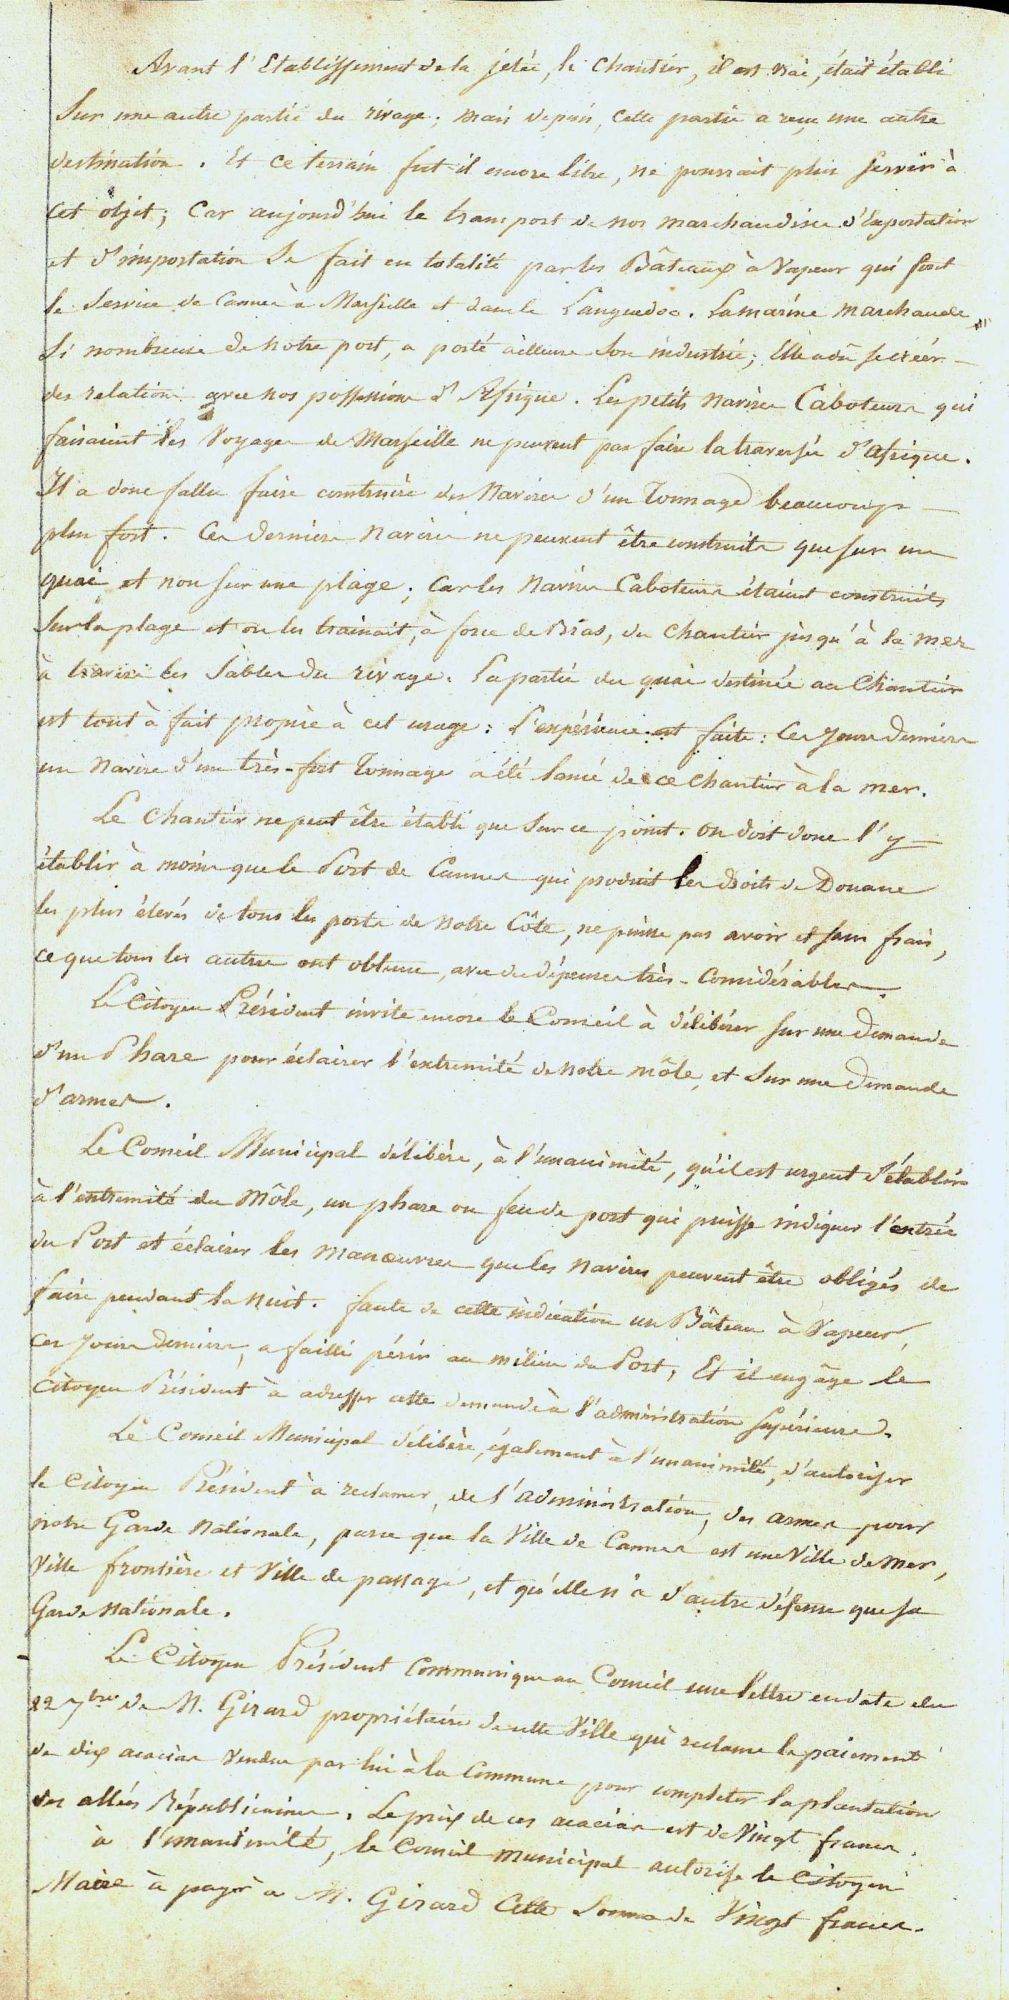 Avant l'Etablissement de la jetée, le chantier, il est vrai, était établi
sur une autre partie du rivage; mais depuis, cette partie a reçu une autre
destination. Et ce terrain fut-il encore libre, ne pourrait plus servir à
cet objet; car aujourd'hui le transport de nos marchandises d'Exportation
et d'importation se fait en totalité par les Bâteaux à Vapeur qui font
le service de Cannes à Marseille et dans le Languedoc. La marine marchande
si nombreuse de notre port, a porté ailleurs son industrie; Elle a dû se créér
des relations avec nos possessions d'Afrique. Les petits navires Caboteurs qui
faisaient les Voyages de Marseille ne peuvent pas faire la traversée d'Afrique.
Il a donc fallu faire construire des Navires d'un Tonnage beaucoup
plus fort. Ces derniers navires ne peuvent être construits que sur un
quai et non sur une plage; car les navires Caboteurs étaient construits
sur la plage et on les trainait, à force de Bras, du chantier jusqu'à la mer
à travers les sables du rivage. La partie du quai destinée au chantier
est tout à fait propre à cet usage: l'expérience est faite: Ces jours derniers
un navire d'un très-fort Tonnage a été lancé de ce chantier à la mer.
Le chantier ne peut être établi que sur ce point. On doit donc l'y
établir à moins que le Port de Cannes qui produit les droits de Douane
les plus élevés de tous les ports de notre Côte, ne puisse pas avoir et sans frais,
ce que tous les autres ont obtenu, avec des dépenses très-considérables.
Le Citoyen Président invite encore le Conseil à délibérer sur une demande
d'un Phare pour éclairer l'extremité de notre môle, et sur une demande
d'armes.
Le Conseil Municipal délibère, à l'unanimité, qu'il est urgent d'établir
à l'extremité du Môle, un phare ou feu de port qui puisse indiquer l'entrée
du Port et éclairer les manœuvres que les navires peuvent être obligés de
faire pendant la nuit. faute de cette indication un Bâteau à Vapeur,
ces jours derniers, a failli périr au milieu du Port, Et il engâge le
Citoyen Président à adresser cette demande à l'administration supérieure.
Le Conseil Municipal délibère, également à l'unanimité, d'autoriser
le Citoyen Président à réclamer, de l'administration, des armes pour
notre Garde Nationale, parce que la Ville de Cannes est une Ville de mer,
Ville frontière et Ville de passage, et qu'elle n'a d'autre défense que sa
Garde Nationale.
Le Citoyen Président communique au Conseil une lettre en date du
22 7bre de M. Girard propriétaire de cette Ville qui réclame le paiement
de dix acacias vendus par lui à la Commune pour completer la plantation
des allées Républicaines. Le prix de ces acacias est de Vingt francs.
à l'unanimité, le Conseil municipal autorise le Citoyen
Maire à payer à M. Girard Cette somme de Vingt francs.